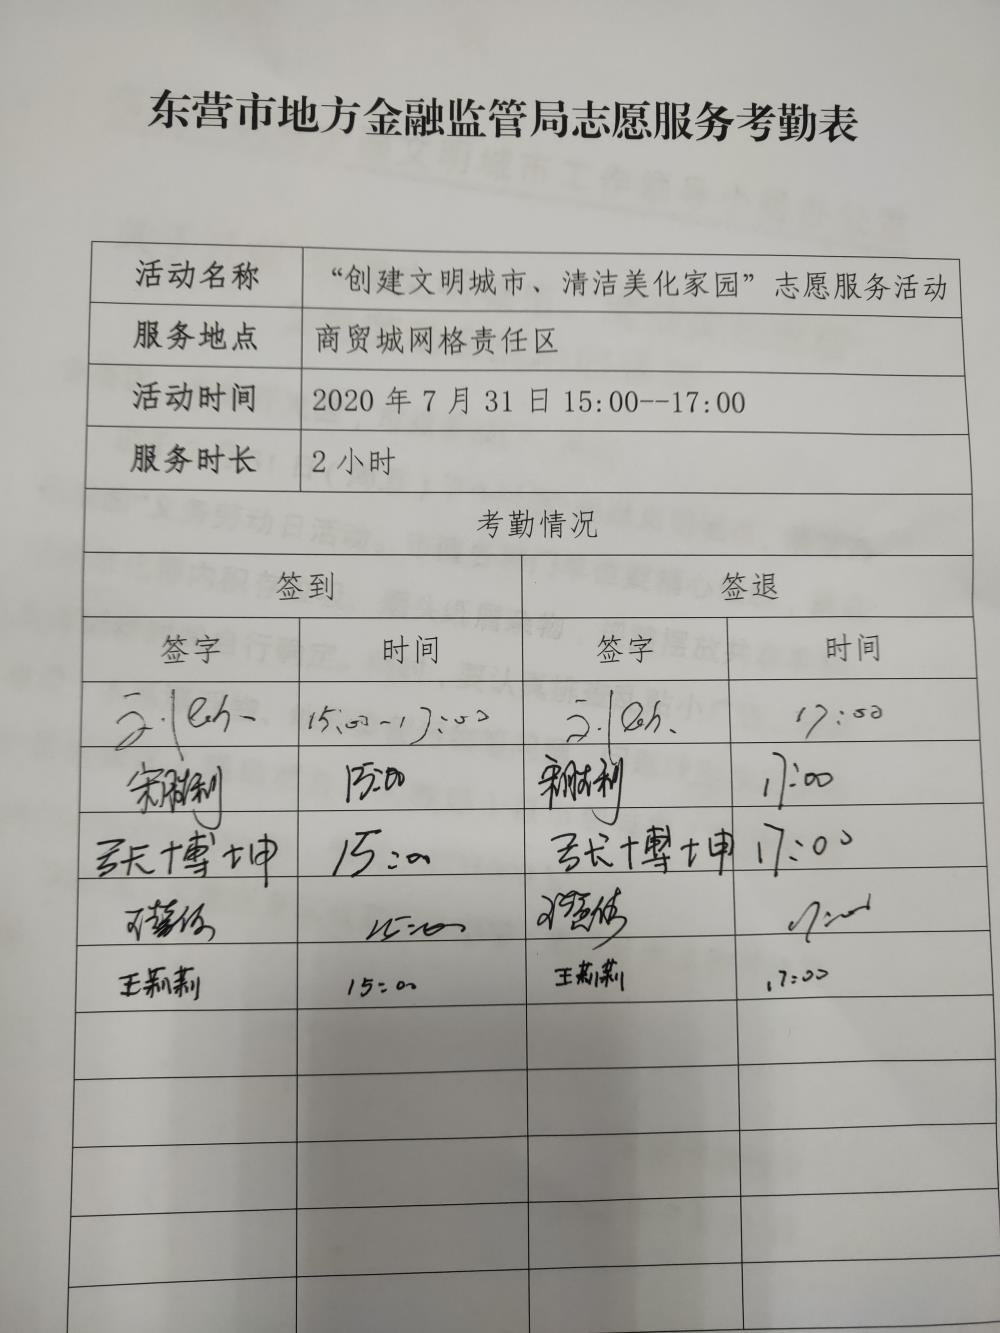 东营市地方金融监管局志愿服务考勤表
活动名称 “创建文明城市、清洁美化家园”志愿服务活动
服务地点 商贸城网格责任区
活动时间 2020年7月31日15:00--17:00
服务时长 2小时
考勤情况
签到 签退
签字 时间 签字 时间
15:00-17:00 17:00
宋胜利 15:00 宋胜利 17:00
张博坤 15:00 张博坤 17:00
15:00 17:00
王莉莉 15:00 王莉莉 17:00